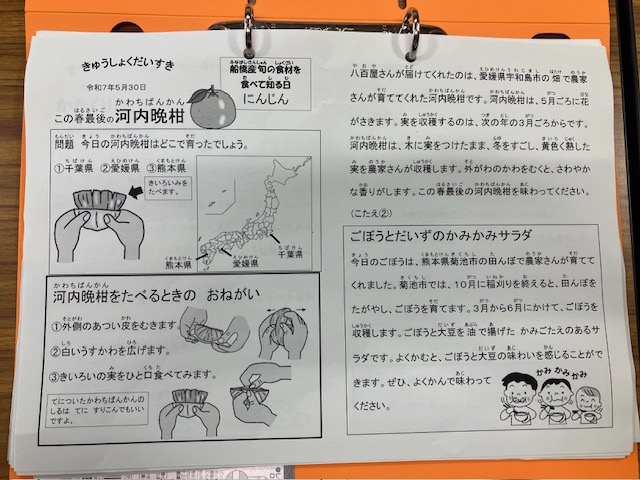 きゅうしょくだいすき
令和7年5月30日
船橋産旬の食材を
食べて知る日
にんじん
この春最後の河内晩柑
問題 今日の河内晩柑はどこで育ったでしょう。
①千葉県 ②愛媛県 ③熊本県
きいろいみを
たべます。
熊本県
愛媛県
千葉県
河内晩柑をたべるときの おねがい
①外側のあつい皮をむきます。
②白いうすかわを広げます。
③きいろいの実をひと口食べてみます。
てについたかわちばんかんの
しるは てに すりこんでもいい
ですよ。
八百屋さんが届けてくれたのは、愛媛県宇和島市の畑で農家
さんが育ててくれた河内晩柑です。河内晩柑は、5月ごろに花
がさきます。実を収穫するのは、次の年の3月ごろからです。
河内晩柑は、木に実をつけたまま、冬をすごし、黄色く熟した
実を農家さんが収穫します。外がわのかわをむくと、さわやか
な香りがします。この春最後の河内晩柑を味わってください。
(こたえ②)
ごぼうとだいずのかみかみサラダ
今日のごぼうは、熊本県菊池市の田んぼで農家さんが育て
てくれました。菊池市では、10月に稲刈りを終えると、田んぼを
たがやし、ごぼうを育てます。3月から6月にかけて、ごぼうを
収穫します。ごぼうと大豆を油で揚げた かみごたえのあるサ
ラダです。よくかむと、ごぼうと大豆の味わいを感じることがで
きます。ぜひ、よくかんで味わって
ください。
かみかみかみ